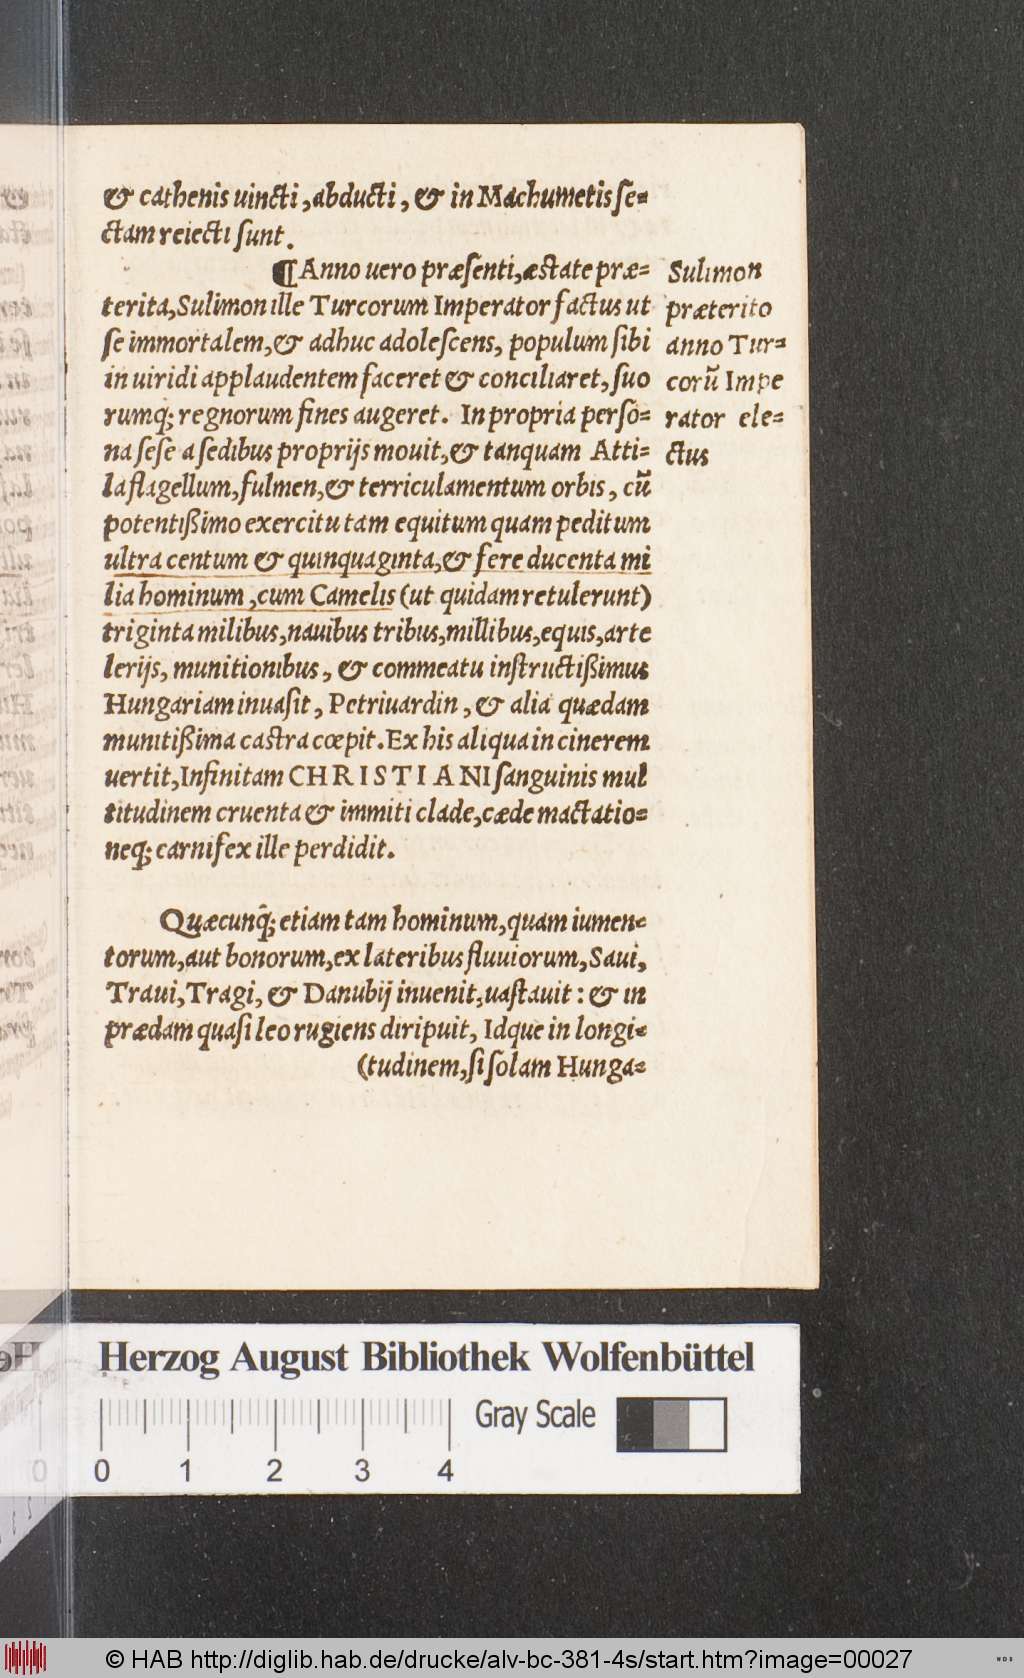 & cathenis uincti, abducti, & in Machumetis ſe=
ctam reiecti ſunt.
¶ Anno uero præſenti, æſtate præ=
terita, Sulimon ille Turcorum Imperator factus ut
ſe immortalem, & adhuc adoleſcens, populum ſibi
in uiridi applaudentem faceret & conciliaret, ſuo
rumq; regnorum fines augeret. In propria perſo=
na ſeſe a ſedibus proprijs mouit, & tanquam Atti=
la flagellum, fulmen, & terriculamentum orbis, cũ
potentißimo exercitu tam equitum quam peditum
ultra centum & quinquaginta, & fere ducenta mi
lia hominum, cum Camelis (ut quidam retulerunt)
triginta milibus, nauibus tribus, millibus, equis, arte
lerijs, munitionibus, & commeatu inſtructißimus
Hungariam inuaſit, Petriuardin, & alia quædam
munitißima caſtra cœpit. Ex his aliqua in cinerem
uertit, Infinitam CHRISTIANI ſanguinis mul
titudinem cruenta & immiti clade, cæde mactatio=
neq; carnifex ille perdidit.
Quæcunq̃; etiam tam hominum, quam iumen=
torum, aut bonorum, ex lateribus fluuiorum, Saui,
Traui, Tragi, & Danubij inuenit, uaſtauit: & in
prædam quaſi leo rugiens diripuit, Idque in longi=
(tudinem, ſi ſolam Hunga=
Sulimon
præterito
anno Tur=
corũ Impe
rator ele=
ctus
Herzog August Bibliothek Wolfenbüttel
Gray Scale
0 1 2 3 4
© HAB http://diglib.hab.de/drucke/alv-bc-381-4s/start.htm?image=00027